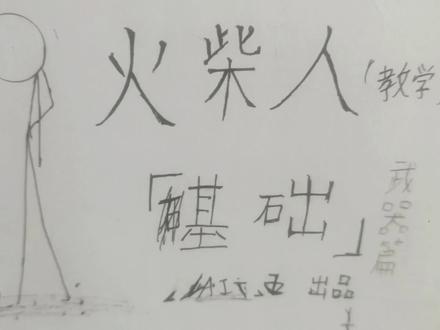 火柴人(教学
「基础」
武器篇
出品